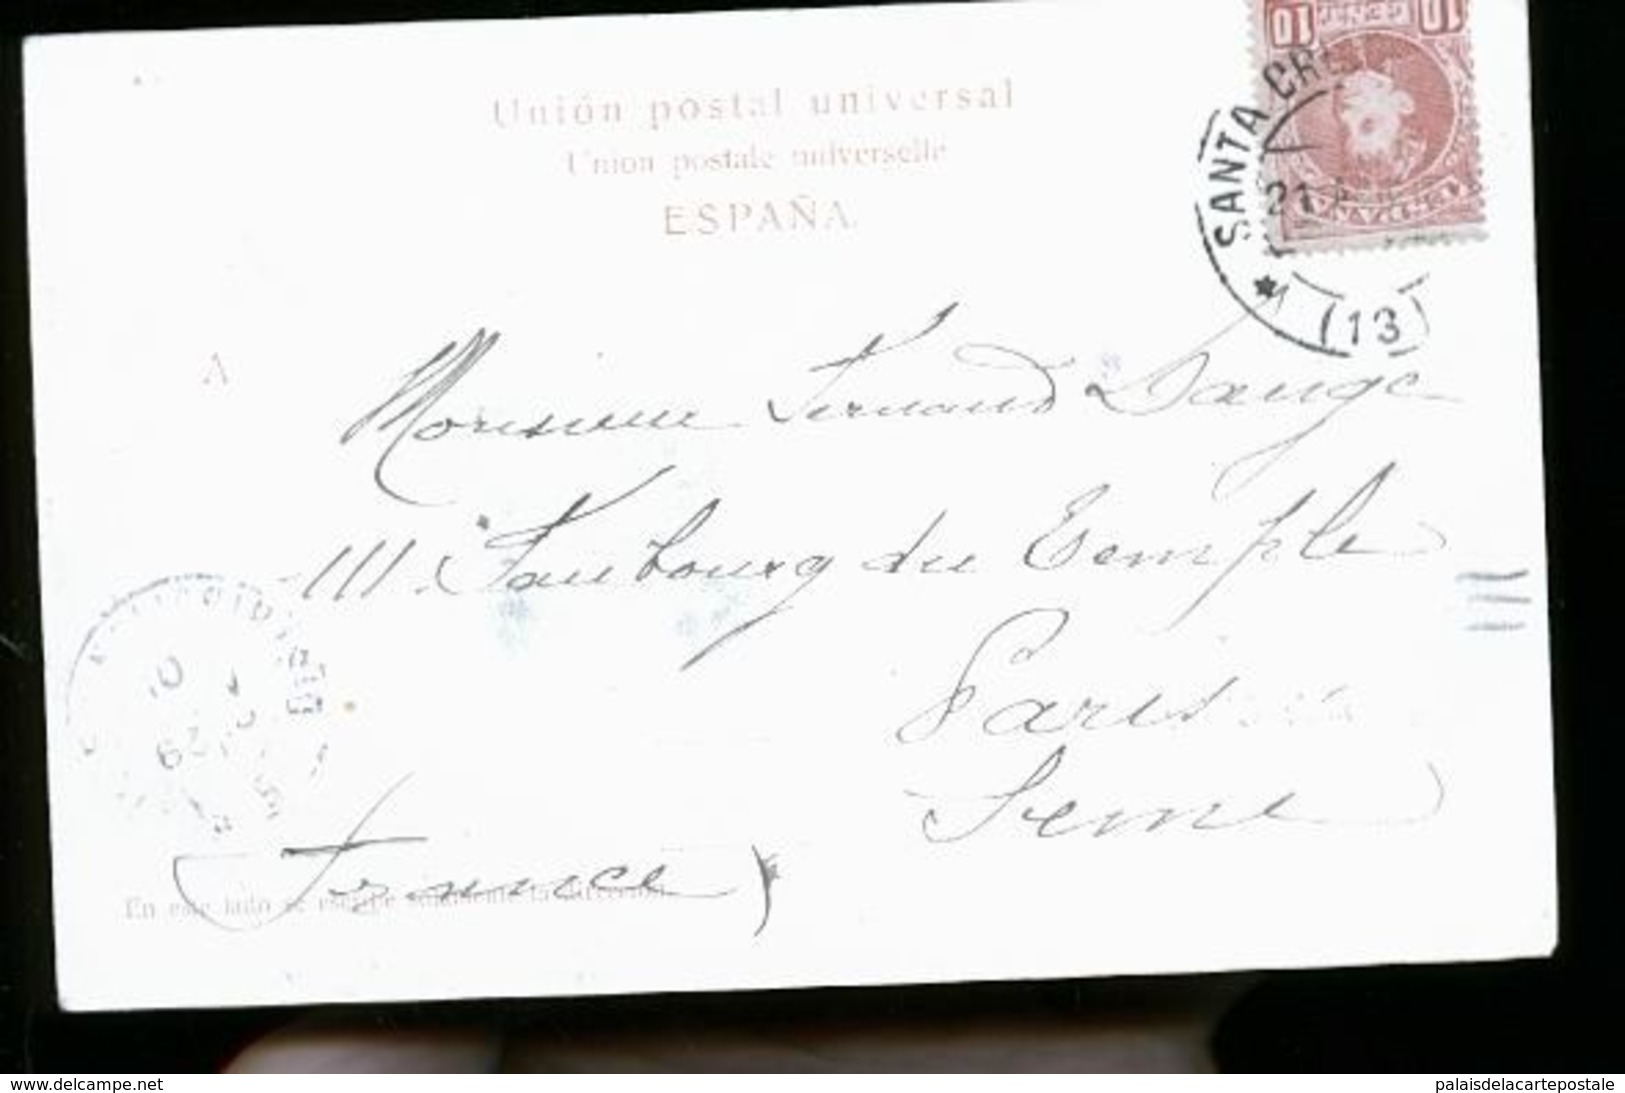 Unión postal universal
Union postale universelle
ESPAÑA
10 CENT 10
SANTA CR
21
(13)
A
Monsieur Fernand Dange
111. Faubourg du Temple
Paris
Seine
France
En este lado se escribe solamente la dirección
www.delcampe.net
palaisdelacartepostale